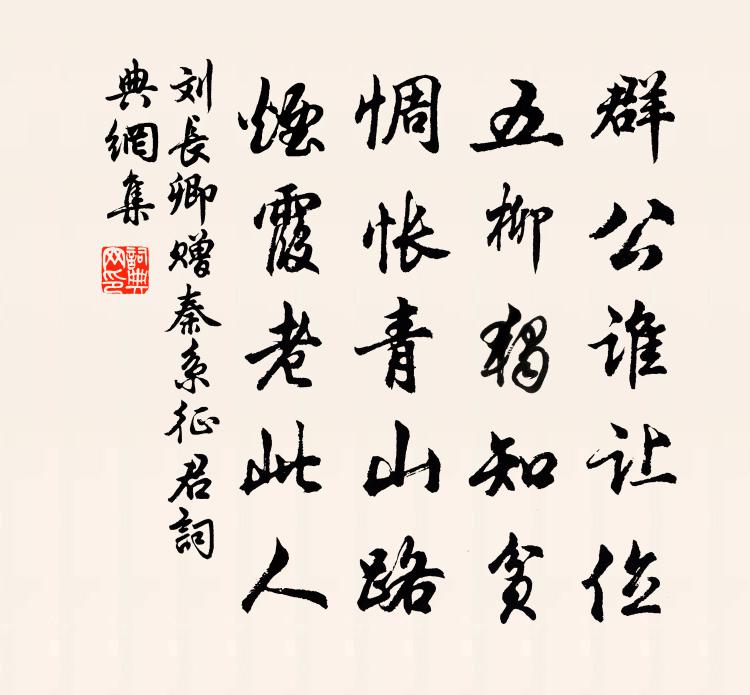 群公谁让位
五柳獨知贫
惆怅青山路
煙霞老此人
刘長卿赠秦系征君詞
典網集
詞典
网印